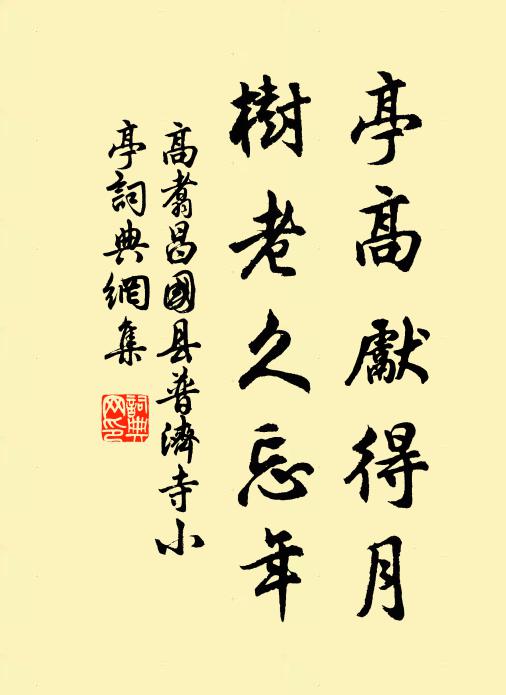 亭高獻得月
樹老久忘年
高翥昌國县普濟寺小
亭詞典網集
詞典网印